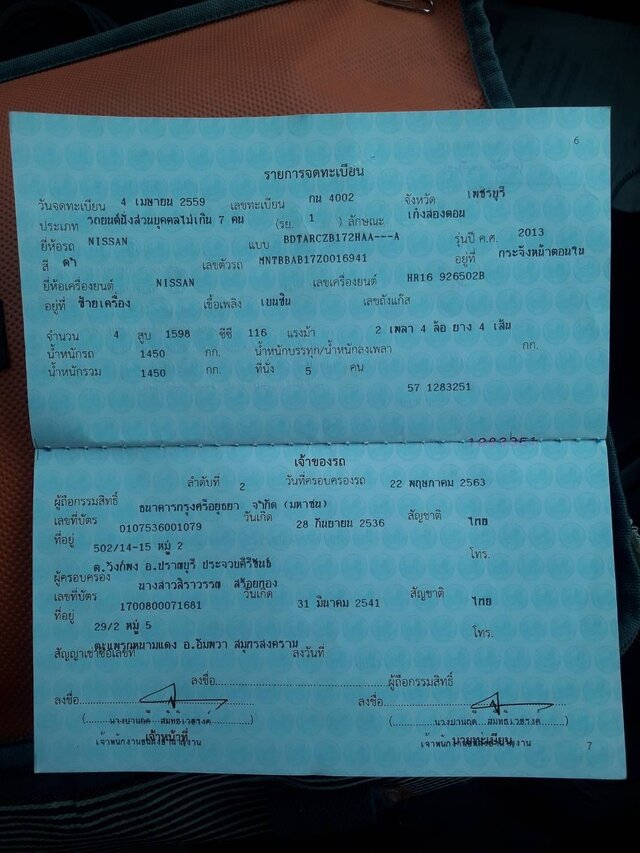 6
รายการจดทะเบียน
วันจดทะเบียน 4 เมษายน 2559 เลขทะเบียน กน 4002 จังหวัด เพชรบุรี
ประเภท รถยนต์นั่งส่วนบุคคลไม่เกิน 7 คน (รย. 1 ) ลักษณะ เก๋งสองตอน
ยี่ห้อรถ NISSAN แบบ BDTARCZB172HAA---A รุ่นปี ค.ศ. 2013
สี ดำ เลขตัวรถ MNTBBAB17Z0016941 อยู่ที่ กระจังหน้าตอนใน
ยี่ห้อเครื่องยนต์ NISSAN เลขเครื่องยนต์ HR16 926502B
อยู่ที่ ซ้ายเครื่อง เชื้อเพลิง เบนซิน เลขถังแก๊ส
จำนวน 4 สูบ 1598 ซีซี 116 แรงม้า 2 เพลา 4 ล้อ ยาง 4 เส้น
น้ำหนักรถ 1450 กก. น้ำหนักบรรทุก/น้ำหนักลงเพลา กก.
น้ำหนักรวม 1450 กก. ที่นั่ง 5 คน
57 1283251
เจ้าของรถ
ลำดับที่ 2 วันที่ครอบครองรถ 22 พฤษภาคม 2563
ผู้ถือกรรมสิทธิ์ ธนาคารกรุงศรีอยุธยา จำกัด (มหาชน)
เลขที่บัตร 0107536001079 วันเกิด 28 กันยายน 2536 สัญชาติ ไทย
ที่อยู่ 502/14-15 หมู่ 2 โทร.
ต.วังก์พง อ.ปราณบุรี ประจวบคีรีขันธ์
ผู้ครอบครอง นางสาวสิราวรรณ สร้อยทอง
เลขที่บัตร 1700800071681 วันเกิด 31 มีนาคม 2541 สัญชาติ ไทย
ที่อยู่ 29/2 หมู่ 5 โทร.
ต.แพรกหนามแดง อ.อัมพวา สมุทรสงคราม
สัญญาเช่าซื้อเลขที่ ลงวันที่
ลงชื่อ ผู้ถือกรรมสิทธิ์
ลงชื่อ ลงชื่อ
เจ้าหน้าที่ นายทะเบียน
7